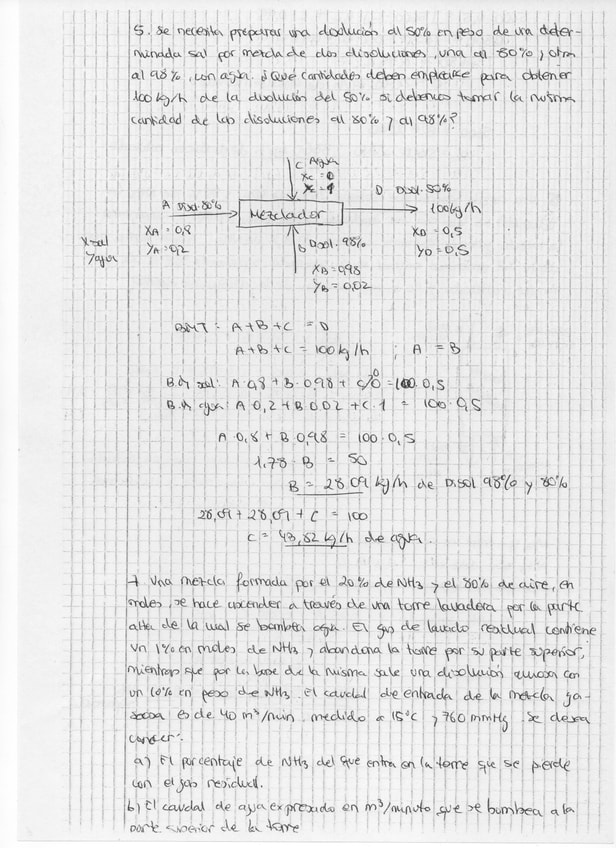 5. Se necesita preparar una disolución al 50% en peso de una deter-
minada sal por mezcla de dos disoluciones, una al 80% y otra
al 98%, con agua. ¿Qué cantidades deben emplearse para obtener
100 kg/h de la disolución del 50% si debemos tomar la misma
cantidad de las disoluciones al 80% y al 98%?
C Agua
Xc = 0
Yc = 1
A Disol. 80%
XA = 0,8
YA = 0,2
Mezclador
D Disol. 50%
100 kg/h
XD = 0,5
YD = 0,5
X sal
Y agua
b Disol. 98%
XB = 0,98
YB = 0,02
BMT: A + B + C = D
A + B + C = 100 kg/h ; A = B
B. de sal: A·0,8 + B·0,98 + C·0 = 100·0,5
B. de agua: A·0,2 + B·0,02 + C·1 = 100·0,5
A·0,8 + B·0,98 = 100·0,5
1,78·B = 50
B = 28,09 kg/h de Disol 98% y 80%
28,09 + 28,09 + C = 100
C = 43,82 kg/h de agua.
7. Una mezcla formada por el 20% de NH3 y el 80% de aire, en
moles, se hace ascender a través de una torre lavadera por la parte
alta de la cual se bombea agua. El gas de lavado residual contiene
un 1% en moles de NH3 y abandona la torre por su parte superior,
mientras que por la base de la misma sale una disolución acuosa con
un 10% en peso de NH3. el caudal de entrada de la mezcla ga-
seosa es de 40 m³/min. medido a 15°C y 760 mmHg. Se desea
conocer:
a) El porcentaje de NH3 del que entra en la torre que se pierde
con el gas residual.
b) El caudal de agua expresado en m³/minuto que se bombea a la
parte superior de la torre